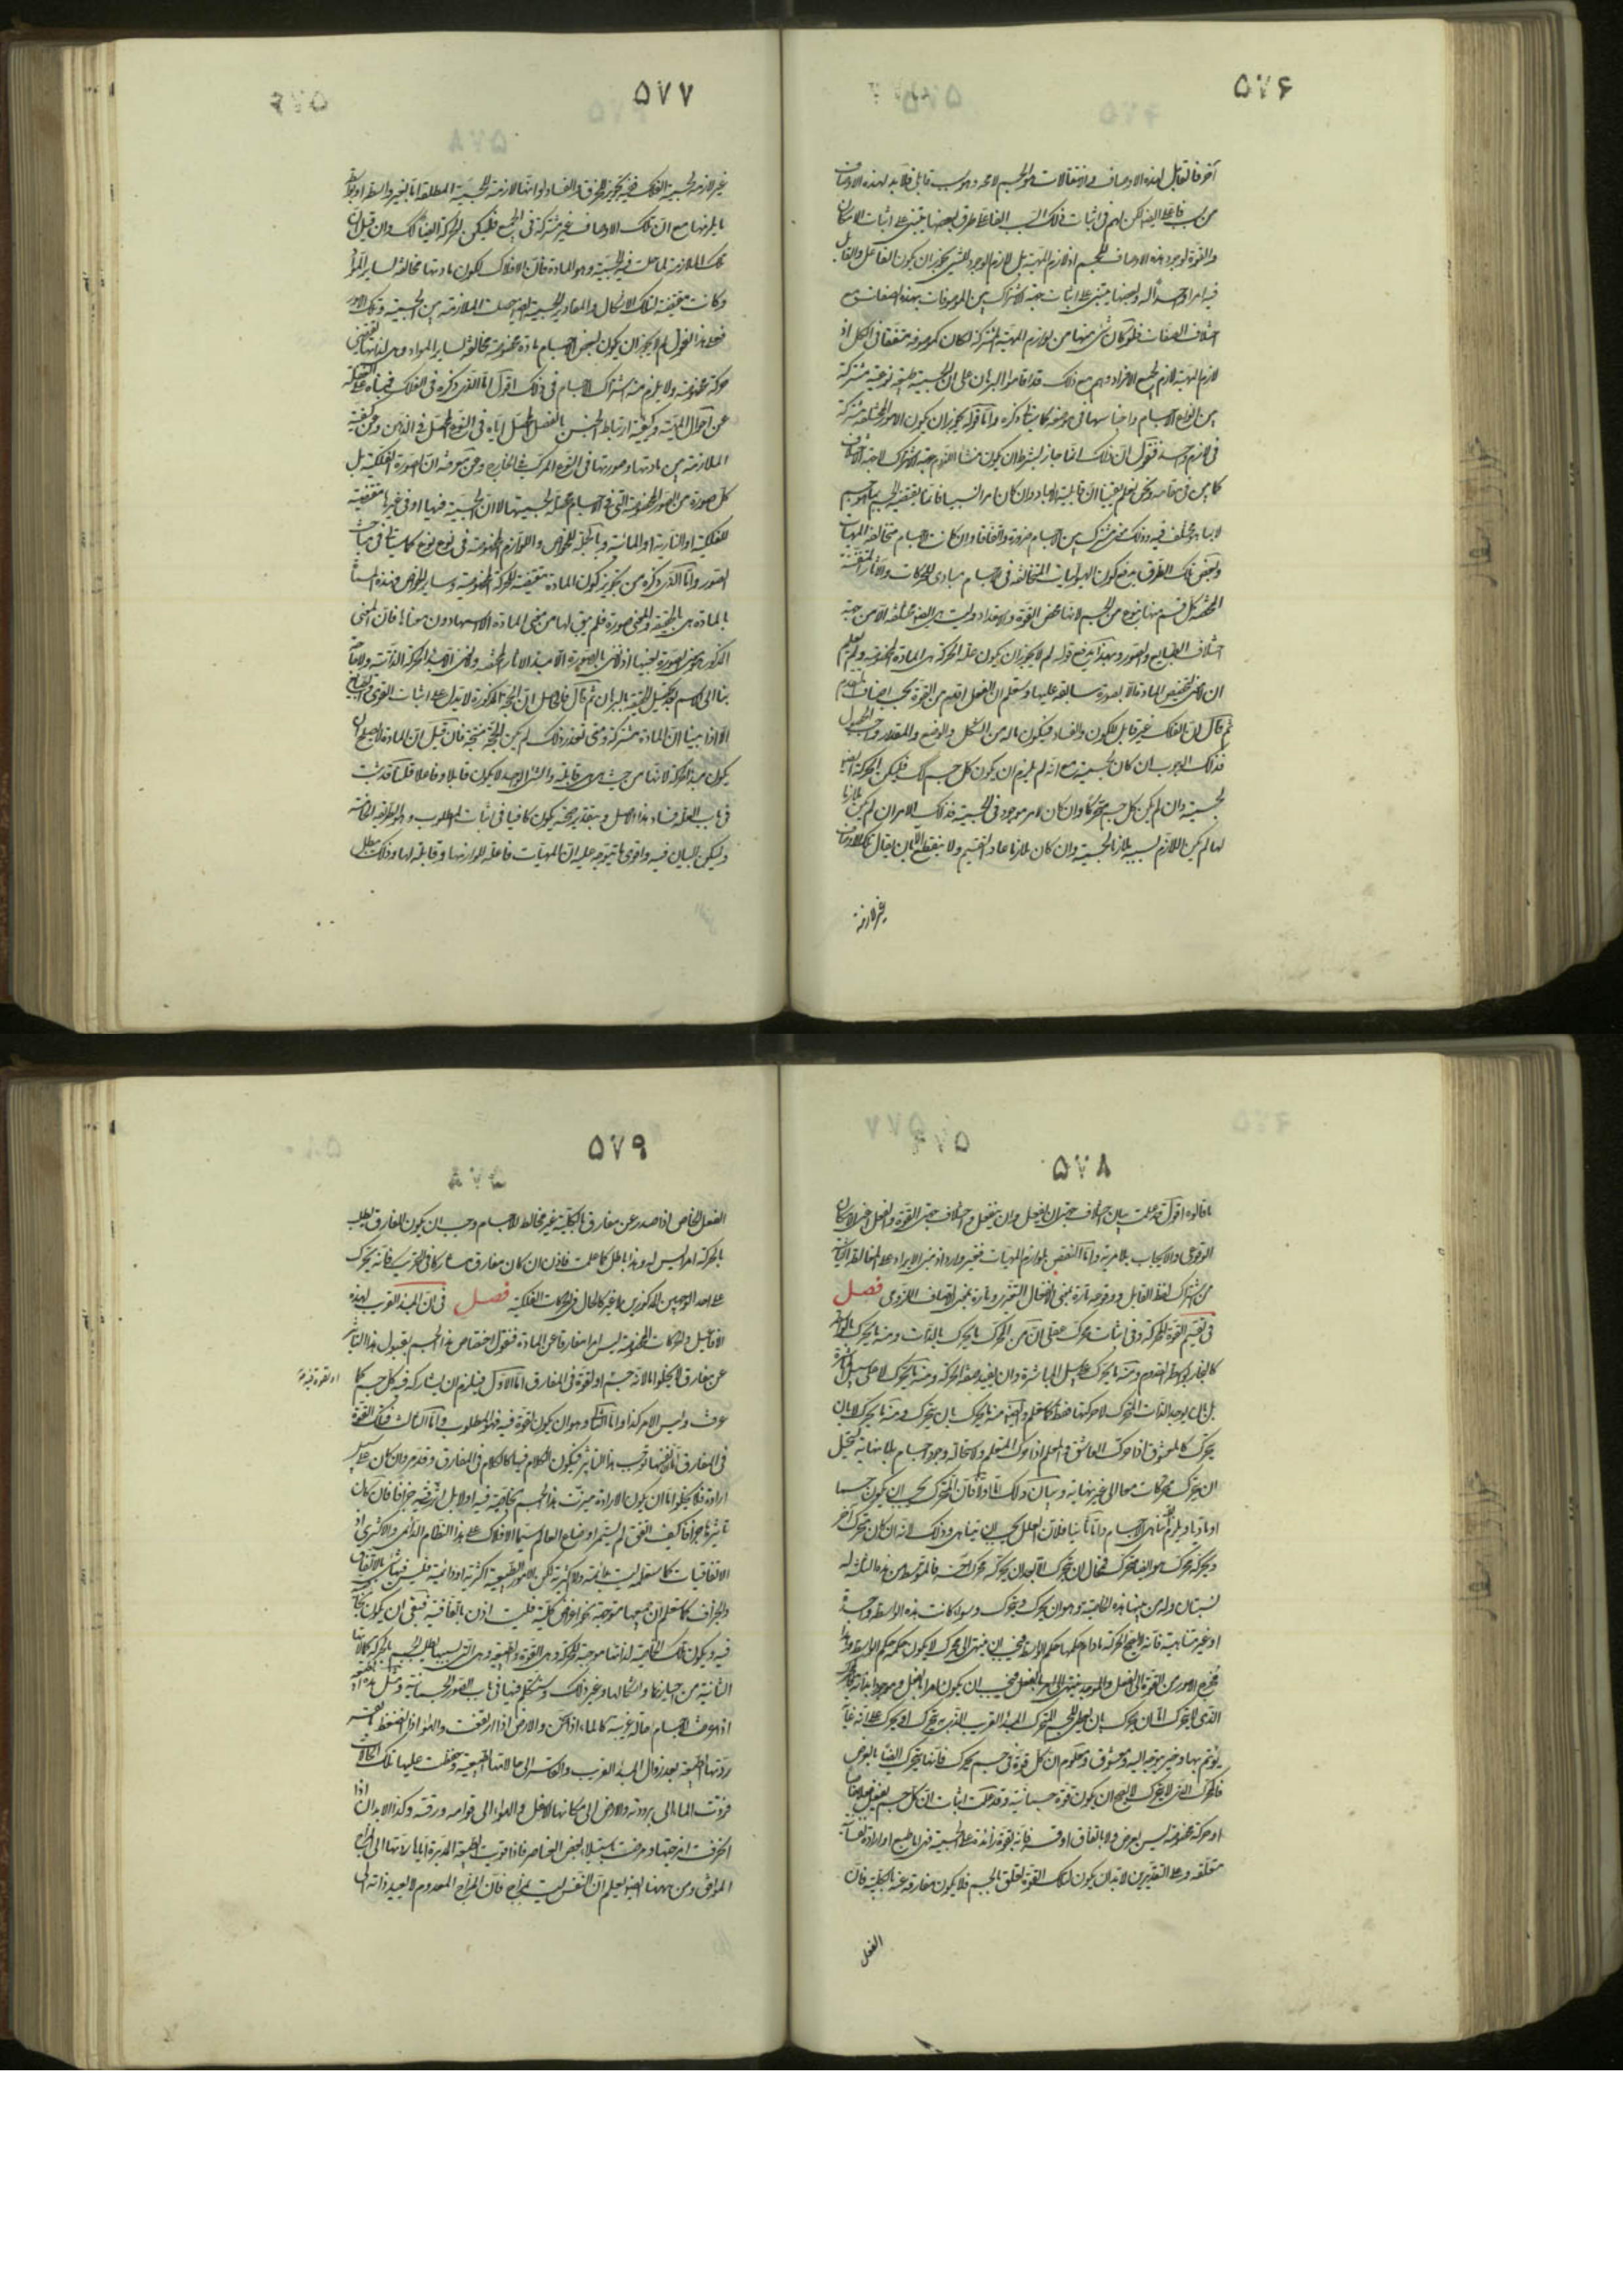 ۵۷۶
آخر فالقابل لهذه الاوصاف والانتقالات هو الجسم لا محالة وهو سبب قابل فلا بد لهذه الاوصاف
من سبب فاعل ايضا لكن لهم فى اثبات ذلك السبب الفاعل طرق بعضها يبتنى على اثبات الامكان
والقوة لوجود هذه الاوصاف للجسم اذ لازم المهية بل لازم الوجود للشى يجوز ان يكون الفاعل والقابل
فيه امرا واحدا وبعضها يبتنى على اثبات جهة الاشتراك بين الموصوفات بهذه الصفات مع
اختلاف الصفات فلو كان شى منها من لوازم المهية المشتركة لكان كل موصوفه متفقة فى الكل اذ
لازم المهية لازم لجميع الافراد وهم مع ذلك قد اقاموا البرهان على ان الجسمية طبيعة نوعية مشتركة
بين انواع الاجسام واجناسها فى موضعه كما سيأتى ذكره واما قوله يجوز ان يكون الامور المختلفة مشتركة
فى لازم واحد فنقول ان ذلك انما جاز بشرط ان يكون منشأ اللزوم جهة الاشتراك لا جهة الاختلاف
كما بين فى مقامه ونحن نعلم يقينا ان قابلية الابعاد وان كان امرا نسبيا فانما يقتضيه الجسم بما هو جسم
لا بما هو مختلف فيه وذلك معنى مشترك بين الاجسام ضرورة واتفاقا وان كانت الاجسام متخالفة المهيات
وبعض تلك الطرق يدفع كون الهيوليات المتخالفة فى الاجسام مبادى للحركات والاثار المختصة
المختصة كل قسم منها بنوع من الجسم لانها محض القوة والاستعداد وليست هى ايضا مختلفة الا من جهة
اختلاف الطبايع والصور وبهذا يندفع قوله لم لا يجوز ان يكون علة الحركة هى المادة المخصوصة ولم يعلم
ان لا معنى لتخصيص المادة الا بصورة سابقة عليها وستعلم ان الفعل اقدم من القوة بحسب اصناف التقدم
ثم قال ان الفلك غير قابل للكون والفساد فيكون ماله من الشكل والوضع والمقدار واجب الحصول
فذلك الوجوب ان كان لجسميته مع انه لم يلزم ان يكون كل جسم كذلك فليكن الحركة ايضا
لجسميته وان لم يكن كل جسم متحركا وان كان لامر موجود فى الجسمية فذلك الامر ان لم يكن ملازما
لها لم يكن اللازم بسببه ملازما لجسميته وان كان ملازما عاد التقسيم ولا ينقطع الا بان يقال تلك الاوصاف
غير لازمة
۵۷۷
غير لازمة لجسمية الفلك فيجوز الخرق والفساد او انها لازمة للجسمية المطلقة اما بغير واسطة او بواسطة
ما يلزمها مع ان تلك الاوصاف غير مشتركة فى الجميع فليكن الحركة ايضا كذلك وان قيل ان
تلك الملازمة لما حلت فيه الجسمية وهو المادة فان الافلاك لكون مادتها مخالفة لساير المواد
وكانت مقتضية لتلك الاشكال والمقادير الجسمية ايضا حصلت الملازمة بين الجسمية وتلك الامور
فعلى هذا نقول لم لا يجوز ان يكون لبعض الاجسام مادة مخصوصة مخالفة لساير المواد وهى لذاتها تقتضى
حركة مخصوصة ولا يلزم منه اشتراك الاجسام فى ذلك اقول اما الذى ذكره فى الفلك فمبناه على الغفلة
عن احوال المهية وكيفية ارتباط الجنس بالفصل المحصل اياه فى النوع المحصل فى الذهن وعن كيفية
الملازمة بين مادتها وصورتها فى النوع المركب فى الخارج وعن معرفة ان الصورة الفلكية بل
كل صورة من الصور المخصوصة التى فى الاجسام محصلة لجسميتها لا ان الجسمية فيها او فى غيرها مقتضية
للفلكية او النارية او المائية وبالجملة للخواص واللوازم المخصوصة فى نوع نوع كما سيأتى فى مباحث
الصور واما الذى ذكره من تجويز كون المادة مقتضية للحركة المخصوصة وساير الخواص فهذه المسماة
بالمادة هى بالحقيقة والمعنى صورة فلم يبق لها من معنى المادة الا اسمها دون معناها فان المعنى
المذكور هو معنى الصورة بعينها اذ لا معنى بالصورة الا مبدء الاثار المختصة ولا معنى الا مبدء الحركة الذاتية ولا مشاحة
بنا فى الاسم بعد تحصيل الحقيقة بالبرهان ثم قال فالحاصل ان الحجة المذكورة لا تدل على اثبات القوى الا بعد
الا اذا بينا ان المادة مشتركة ومتى تعذر ذلك لم يكن الحجة منتجة فان قيل ان المادة لا يصلح ان
يكون مبدء الحركة لانها من حيث هى هى قابلة والشى الواحد لا يكون قابلا وفاعلا قلنا قد ثبت
فى باب العلة فساد هذا الاصل وبتقدير صحته يكون كافيا فى اثبات المطلوب وهو الطريقة الخاصة
وليكن البيان فيه واقوى ما يتوجه عليه ان المهيات فاعلة للوازمها وقابلة لها وذلك يبطل
۵۷۸
ما قالوه اقول قد علمت بيان اختلاف جهتى ان يفعل وان ينفعل واختلاف جهتى القوة والفعل اعنى الامكان
الوقوعى والايجاب بلا مرية واما النقض بلوازم المهيات فغير وارد اذ مبنى الايراد على المغالطة الناشئة
من اشتراك لفظ القابل ووقوعه تارة بمعنى الانفعال التغيرى وتارة بمعنى الاتصاف اللزومى فصل
فى تقسيم القوة المحركة وفى اثبات محرك عقلى ان من المحرك ما يحرك بالذات ومنه ما يحرك بالواسطة
كالنجار بواسطة القدوم ومنه ما يحرك على سبيل المباشرة وان يفيد صفة الحركة ومنه ما يحرك لا على سبيل المباشرة
بل بان يوجد الذات المتحرك لا حركتها فقط كما ستعلم وايضا منه ما يحرك بان يتحرك ومنه ما يحرك لا بان
يتحرك كالمعشوق اذا حرك العاشق والمعلم اذا حرك المتعلم ولاستحالة وجود اجسام بلا نهاية يستحيل
ان يتحرك متحركات معا الى غير نهاية وبيان ذلك اما اولا فان المتحرك يجب ان يكون جسما
او ماديا ويلزم تناهى الاجسام واما ثانيا فلان العلل يجب ان يتناهى وذلك لانه ان كان متحرك اخر
وبحركه محرك هو ايضا متحرك فمحال ان محركا الا بعد ان يحركه محرك اخر فالمتوسط من هذه الثلثة له
نسبتان وله من بينها هذه الخاصية وهو ان يحرك ويتحرك وسواء كانت هذه الواسطة واحدة
او غير متناهية فانه لا يصح الحركة ما دام حكمها حكم الاوسط فيجب ان ينتهى الى محرك لا يكون حكمه حكم الواسطة
فخروج الامور من القوة الى الفعل والموجد ينتهى الى امر بالفعل فيجب ان يكون امرا بالفعل وموجودا بذاته فالمحرك
الذى لا يتحرك اما ان يحرك بان يعطى الجسم المتحرك المبدء القريب الذى به يتحرك او يحرك على انه غاية
يؤتم بها وخير يتوجه اليه ومعشوق ومعلوم ان كل قوة فى جسم يحرك فانها يتحرك ايضا بالعرض
فالمحرك الذى لا يتحرك لا يصح ان يكون قوة جسمانية وقد علمت اثبات ان كل جسم يفعل فعلا خاصا
او حركة مخصوصة ليس بعرض ولا باتفاق او قسر فانه بقوة زائدة على الجسمية فهى اما طبع او ارادة نفسانية
متعلقة وعلى التقديرين لا بد ان يكون لتلك القوة تعلق بالجسم فلا يكون مفارقة عنه بالكلية فان
الفعل
۵۷۹
الفعل الخاص اذا صدر عن مفارق بالكلية غير مخالط للاجسام وجب ان يكون المفارق يطلب
بالحركة امرا ليس له وهذا باطل كما علمت فاذن ان كان مفارق مشاركا فى التحريك فانه يحرك
على احد الوجهين المذكورين لا غير كالحال فى الحركات الفلكية فصل فى ان المبدء القريب لهذه
الافاعيل والحركات المخصوصة ليس امرا مفارقا عن المادة فنقول اختصاص هذا الجسم بقبول هذا التأثير
عن مفارق لا يخلو اما لانه جسم او لقوة فى المفارق اما الاول فيلزم ان يشاركه فيه كل جسم كما
او لقوة فيه
عرفت وليس الامر كذا واما الثانى وهو ان يكون لقوة فيه فهو المطلوب واما الثالث فتلك القوة
فى المفارق اما لنفسها توجب هذا التأثير فيكون الكلام فيها كالكلام فى المفارق وقد مر وان كان على سبيل
ارادة فلا يخلو اما ان يكون الارادة ميزت هذا الجسم بخاصية فيه او لا بل اثر فيه جزافا فان كان
تأثيرها جزافا كيف اتفق لم يستمر اوضاع العالم سيما الافلاك على هذا النظام الدائمى والاكثرى اذ
الاتفاقيات كما ستعلمه ليست دائمة ولا اكثرية لكن الامور الطبيعية اكثرية او دائمية فليس فيها شى بالاتفاق
والجزاف كما ستعلم ان جميعها متوجهة نحو اغراض كلية فليست اذن باتفاقية فبقى ان يكون بخاصية
فيه ويكون تلك الخاصية لذاتها موجبة للحركة وهى القوة والطبيعة وهى التى بسببها يطلب الجسم بالحركة كمالاتها
الثانية من احيازها واشكالها وغير ذلك وستكلم فيها فى باب الصور الجسمانية ومثل هذه الطبيعة
اذا عرضت للاجسام حالة غريبة كالماء اذا سخن والارض اذا ارتفعت والهواء اذا انضغط بالقسر
ردتها الطبيعة بعد زوال المبدء الغريب والقاسر الى حالاتها الطبيعية وحفظت عليها تلك الحالات
فردت الماء الى برودته والارض الى مكانها الاسفل والهواء الى قوامه ورقته وكذا الابدان اذا
انحرفت امزجتها ومرضت باستيلاء بعض العناصر فاذا قويت الطبيعة المدبرة اياها ردتها الى المزاج
الموافق ومن ههنا ايضا يعلم ان النفس ليست بمزاج فان المزاج المعدوم لا يعيد ذاته الى